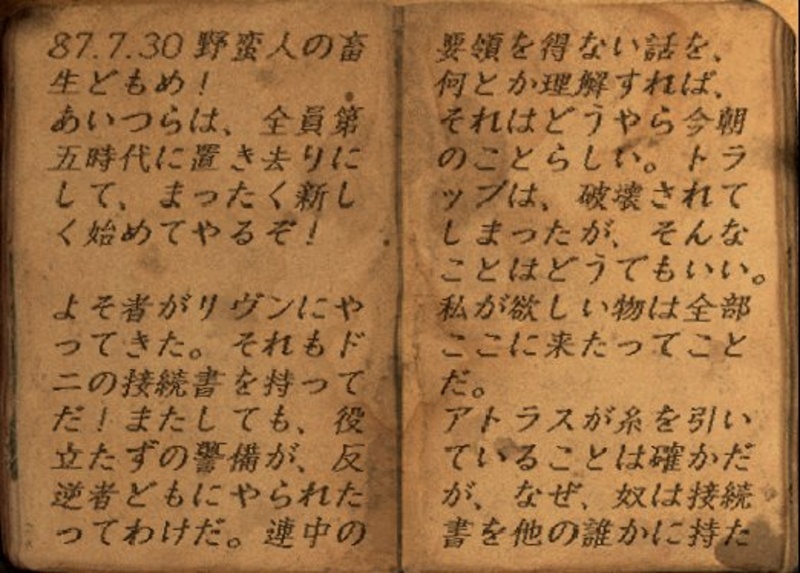 87.7.30 野蛮人の畜
生どもめ！
あいつらは、全員第
五時代に置き去りに
して、まったく新し
く始めてやるぞ！
よそ者がリヴンにや
ってきた。それもド
ニの接続書を持って
だ！またしても、役
立たずの警備が、反
逆者どもにやられた
ってわけだ。連中の
要領を得ない話を、
何とか理解すれば、
それはどうやら今朝
のことらしい。トラ
ップは、破壊されて
しまったが、そんな
ことはどうでもいい。
私が欲しい物は全部
ここに来たってこと
だ。
アトラスが糸を引い
ていることは確かだ
が、なぜ、奴は接続
書を他の誰かに持た